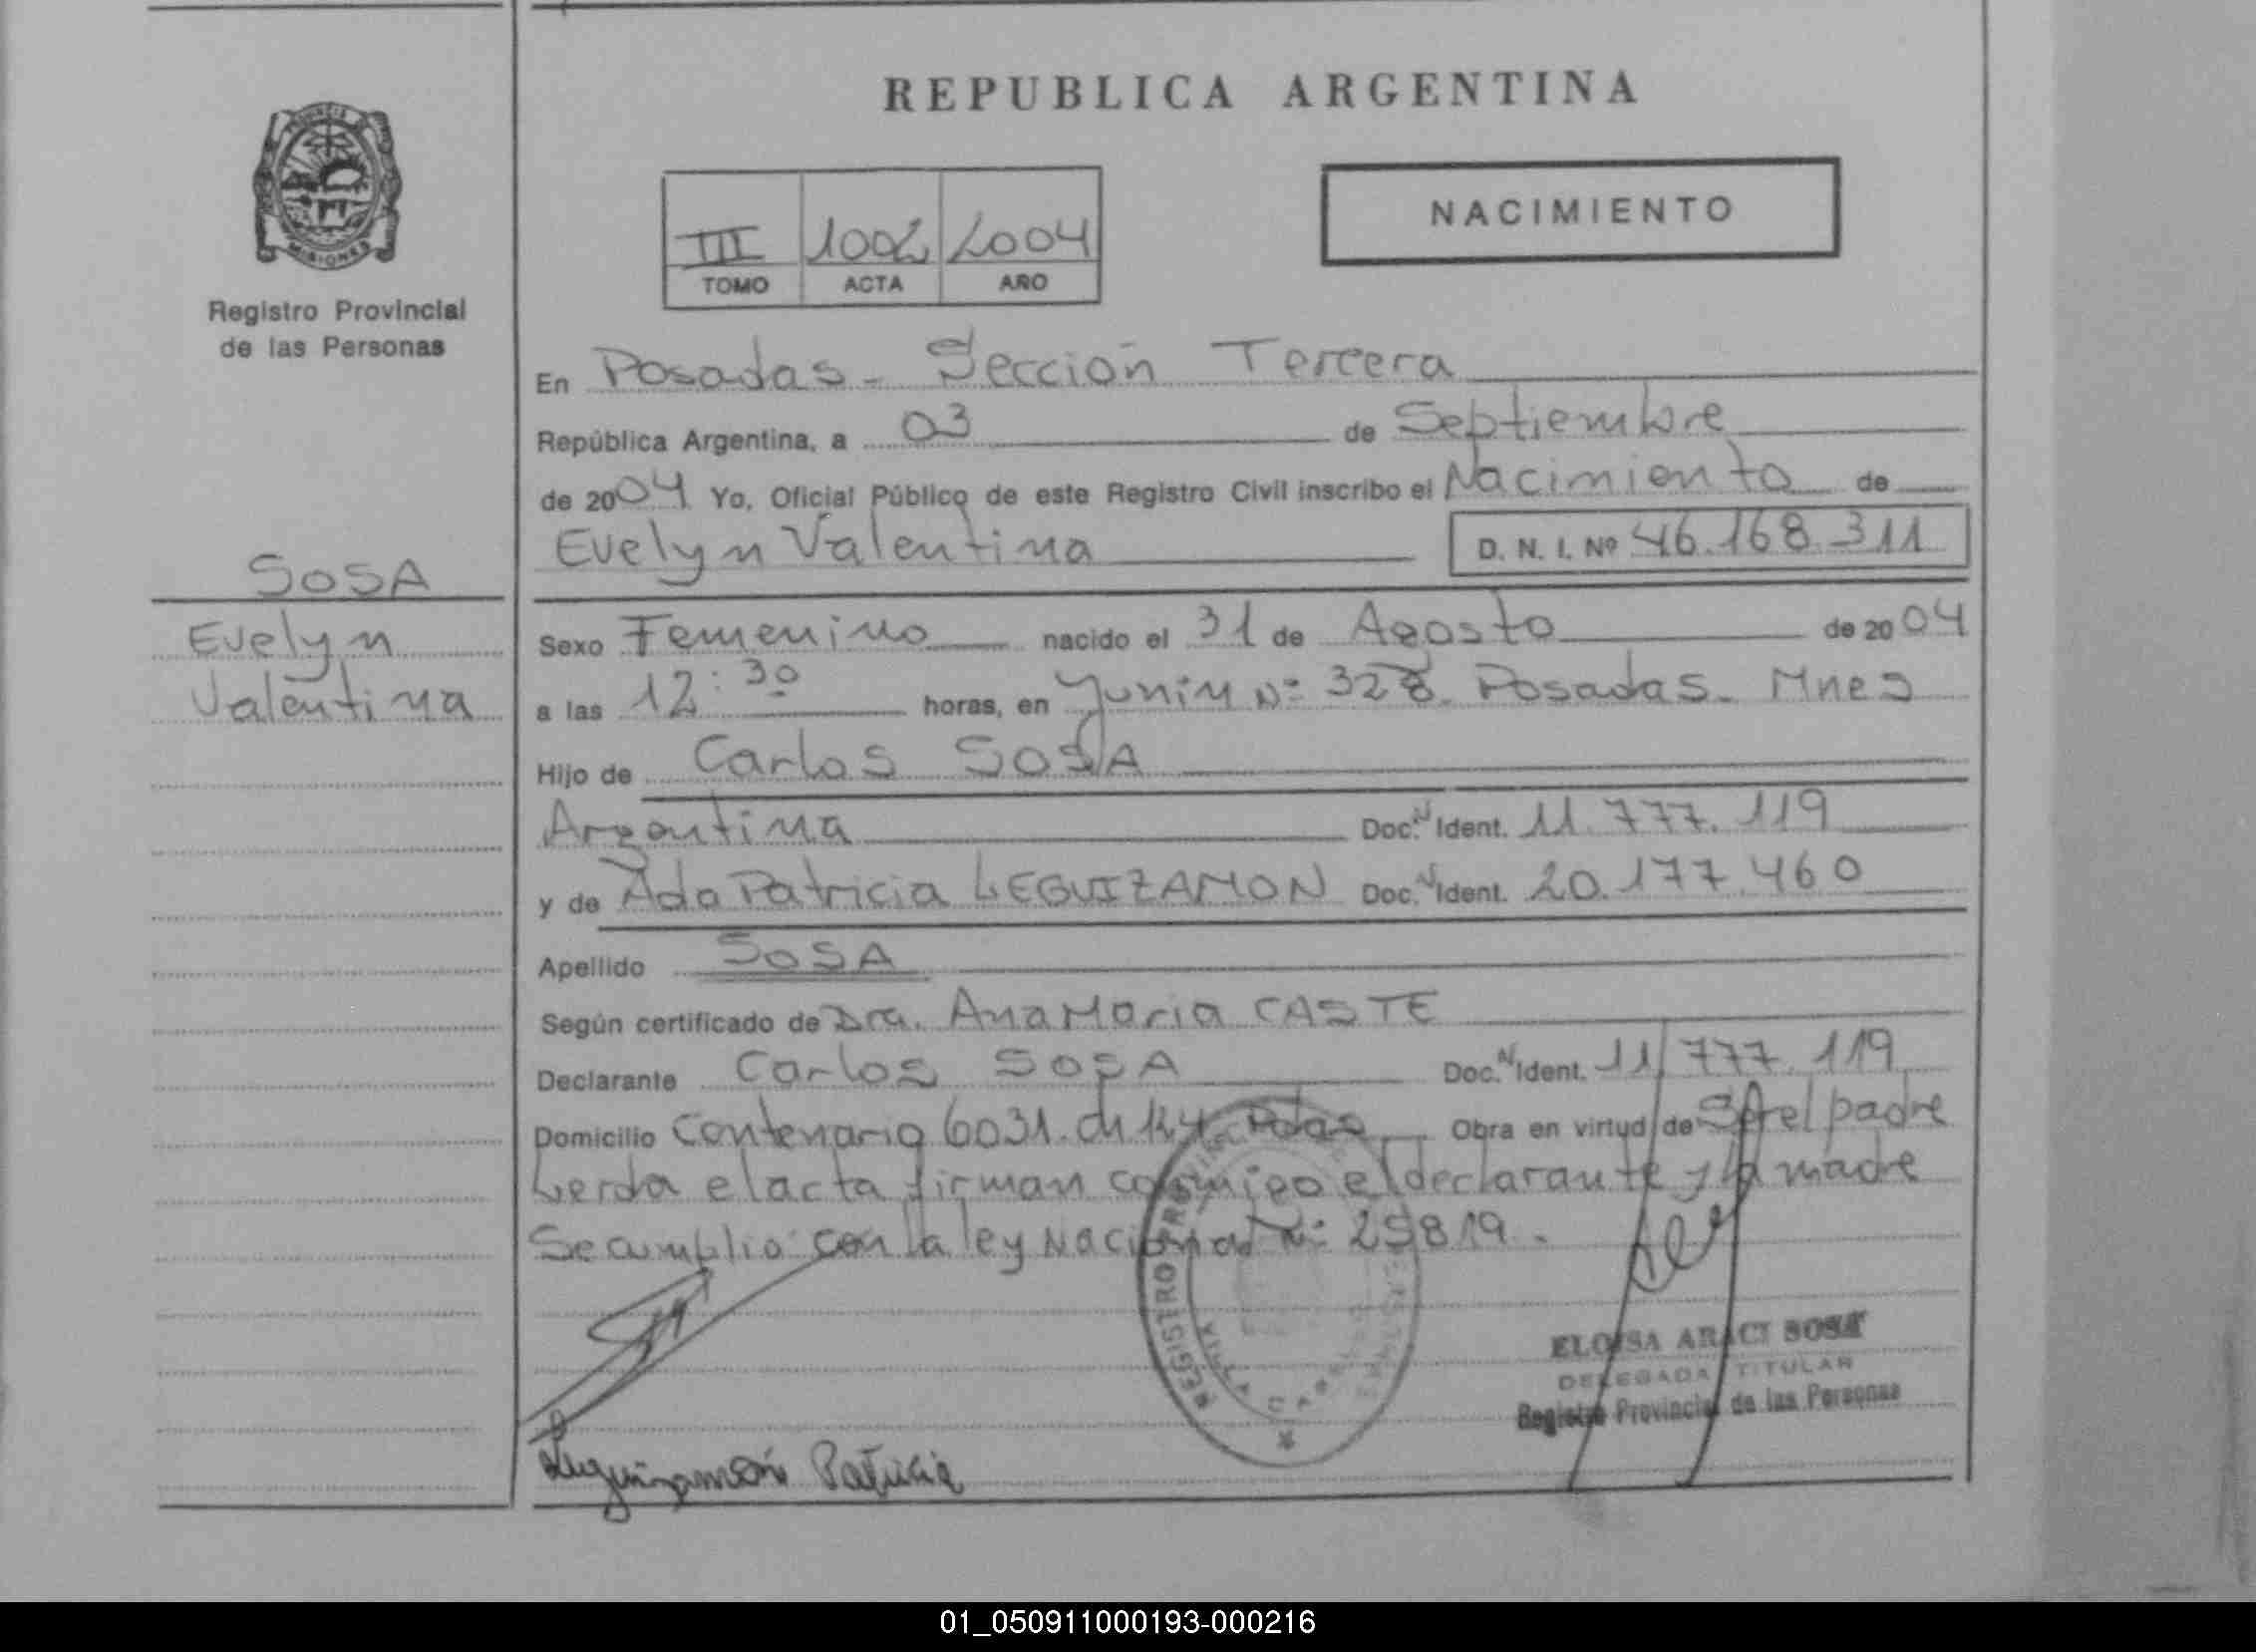 REPUBLICA ARGENTINA
PROVINCIA DE
MISIONES
Registro Provincial
de las Personas
NACIMIENTO
III 1002 2004
TOMO ACTA AÑO
En Posadas - Sección Tercera
República Argentina, a 03 de Septiembre
de 2004 Yo, Oficial Público de este Registro Civil inscribo el Nacimiento de
Evelyn Valentina D. N. I. Nº 46.168.311
SOSA
Evelyn
Valentina
Sexo Femenino nacido el 31 de Agosto de 2004
a las 12:30 horas, en Junín Nº 328. Posadas - Mnes
Hijo de Carlos SOSA
Argentina Doc. N Ident. 11.777.119
y de Ada Patricia LEGUIZAMON Doc. N Ident. 20.177.460
Apellido SOSA
Según certificado de Dra. Ana Maria CASTE
Declarante Carlos SOSA Doc. N Ident. 11.777.119
Domicilio Centenario 6031. Ch 124 Pdas Obra en virtud de Ser el padre
Leida el acta firman conmigo el declarante y la madre
Se cumplio con la ley Nacional Nº 25819.
REGISTRO PROVINCIAL
VILLA CABELLO
ELOISA ARACI SOSA
DELEGADA TITULAR
Registro Provincial de las Personas
Leguizamón Patricia
01_050911000193-000216